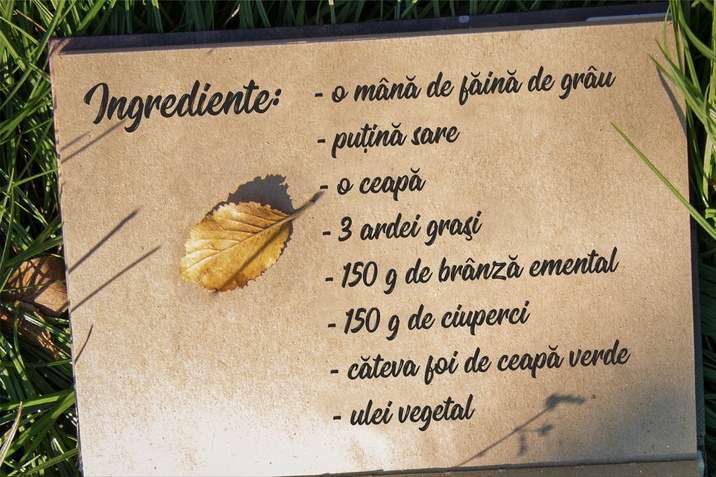 Ingrediente:
- o mână de făină de grâu
- puțină sare
- o ceapă
- 3 ardei grași
- 150 g de brânză emental
- 150 g de ciuperci
- câteva foi de ceapă verde
- ulei vegetal